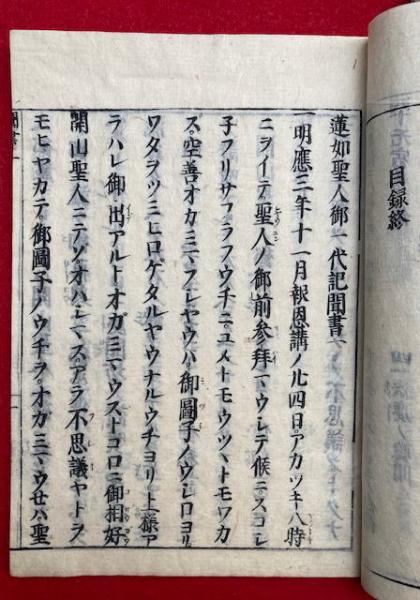 目録終
蓮如聖人御一代記聞書一
一明應三年十一月報恩講ノ廿四日。アカツキ八時
ニヲイテ。聖人ノ御前参拝マウシテ候ニ。スコシ
子フリサフラフウチニ。ユメトモウツヽトモワカ
ス。空善オカミマフスヤウハ。御圖子ノウシロヨリ。
ワタヲツミヒロゲタルヤウナルウチヨリ。上様ア
ラハレ御出アルトオガミマウストコロニ御相好
開山聖人ニテゾオハシマス。アラ不思議ヤトヲ
モヒヤカテ。御圖子ノウチヲ。オガミマウセハ聖